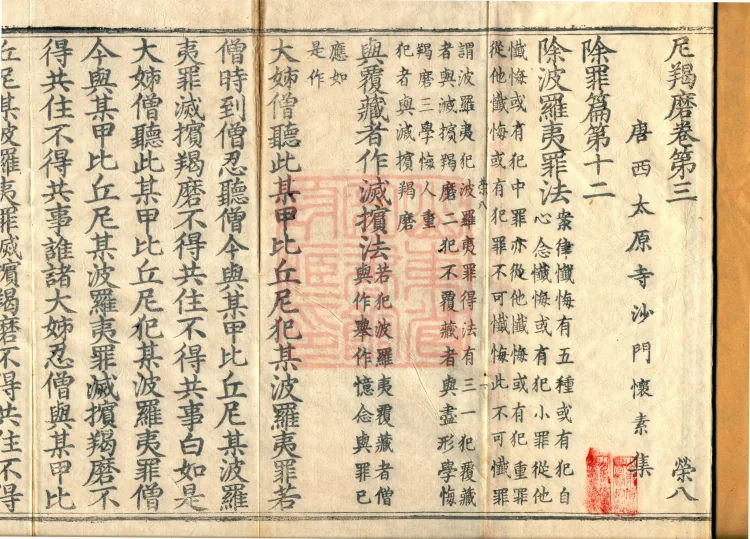 尼羯磨卷第三 榮八
唐西太原寺沙門懷素集
除罪篇第十二
除波羅夷罪法
案律懺悔有五種或有犯自
心念懺悔或有犯小罪從他
懺悔或有犯中罪亦從他懺悔或有犯重罪
從他懺悔或有犯罪不可懺悔此不可懺罪
謂波羅夷犯波羅夷罪得法有三一犯覆藏
者與滅擯羯磨二犯不覆藏者與盡形學悔
羯磨三學悔人重
犯者與滅擯羯磨
榮八
與覆藏者作滅擯法
若犯波羅夷覆藏者僧
與作舉作憶念與罪已
應如
是作
大姊僧聽此某甲比丘尼犯某波羅夷罪若
僧時到僧忍聽僧今與某甲比丘尼某波羅
夷罪滅擯羯磨不得共住不得共事白如是
大姊僧聽此某甲比丘尼犯某波羅夷罪僧
今與某甲比丘尼某波羅夷罪滅擯羯磨不
得共住不得共事誰諸大姊忍僧與某甲比
丘尼某波羅夷罪滅擯羯磨不得共住不得